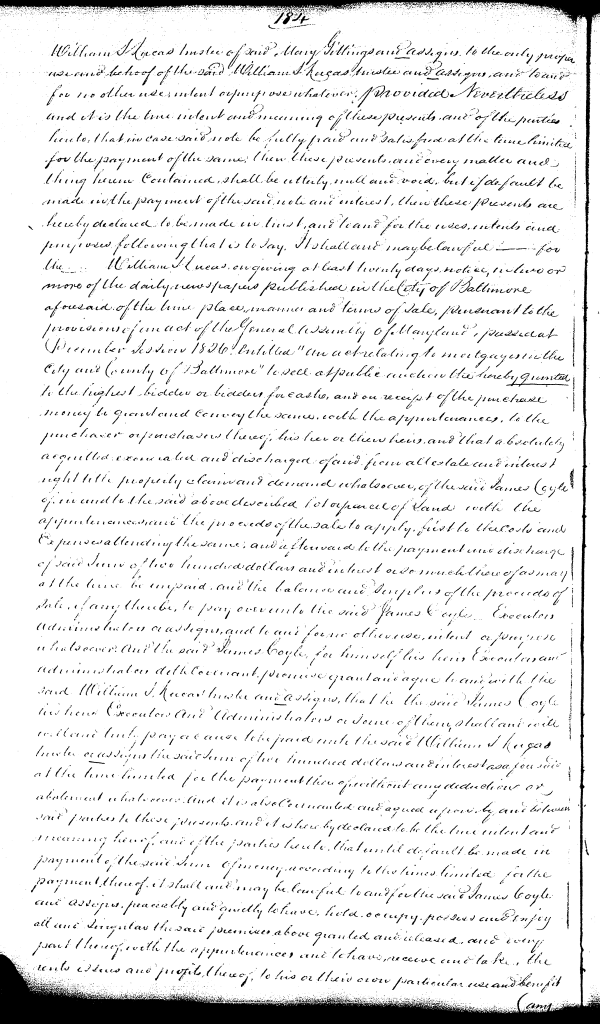 184
William S. Lucas trustee of said Mary Gittings and assigns, to the only proper
use and behoof of the said William S. Lucas, trustee and assigns, and to and
for no other use, intent or purpose whatever, Provided Nevertheless
and it is the true intent and meaning of these presents, and of the parties
hereto, that in case said note be fully paid and satisfied at the time limited
for the payment of the same, then these presents, and every matter and
thing herein contained, shall be utterly null and void, but if default be
made in the payment of the said note and interest, then these presents are
hereby declared to be made in trust, and to and for the uses, intents and
purposes following that is to say, It shall and may be lawful — for
the William S. Lucas, on giving at least twenty days notice, in two or
more of the daily newspapers published in the City of Baltimore
aforesaid of the time place, manner and terms of sale, pursuant to the
provisions of an act of the General Assembly of Maryland, passed at
December Session 1826. Entitled "an act relating to mortgages in the
City and County of Baltimore" to sell at public auction the hereby granted
to the highest bidder or bidders for cash, and on receipt of the purchase
money to grant and convey the same, with the appurtenances, to the
purchaser or purchasers thereof, his her or their heirs, and that absolutely
acquitted exonerated and discharged of and from all estate and interest
right title property claim and demand whatsoever, of the said James Coyle
of, in and to the said above described Lot or parcel of Land with the
appurtenances, and the proceeds of the sale to apply, first to the Costs and
Expenses attending the same, and afterward to the payment and discharge
of said Sum of two hundred dollars and interest or so much thereof as may
at the time be unpaid, and the balance and Surplus of the proceeds of
sale, if any there be, to pay over unto the said James Coyle Executors
administrators or assigns, and to and for no other use, intent or purpose
whatsoever. And the said James Coyle, for himself his heirs Executors and
administrators doth Covenant, promise grant and agree to and with the
said William S. Lucas trustee and assigns, that he the said James Coyle
his heirs Executors And Administrators or some of them, shall and will
well and truly pay or cause to be paid unto the said William S. Lucas
trustee or assigns the said Sum of two hundred dollars and interest as aforesaid
at the time limited for the payment thereof without any deductions or
abatement whatsoever. And it is also Covenanted and agreed upon by and between
said parties to these presents, and it is hereby declared to be the true intent and
meaning hereof, and of the parties hereto, that until default be made in
payment of the said Sum of money, according to the times limited for the
payment thereof, it shall and may be lawful to and for the said James Coyle
and assigns, peaceably and quietly to have, hold, occupy, possess and enjoy
all and Singular the said premises above granted and released, and every
part thereof, with the appurtenances and to have, receive and take, the
rents issues and profits, thereof, to his or their own particular use and benefit
(any